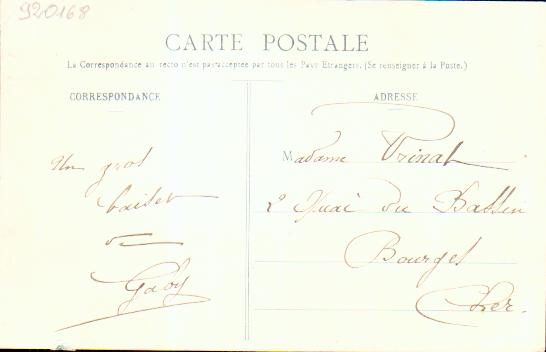 920168
CARTE POSTALE
La Correspondance au recto n'est pas acceptée par tous les Pays Etrangers. (Se renseigner à la Poste.)
CORRESPONDANCE
Un gros
baiser
de
Gaby
ADRESSE
Madame Vrinat
2 Quai du Bassin
Bourges
Cher.